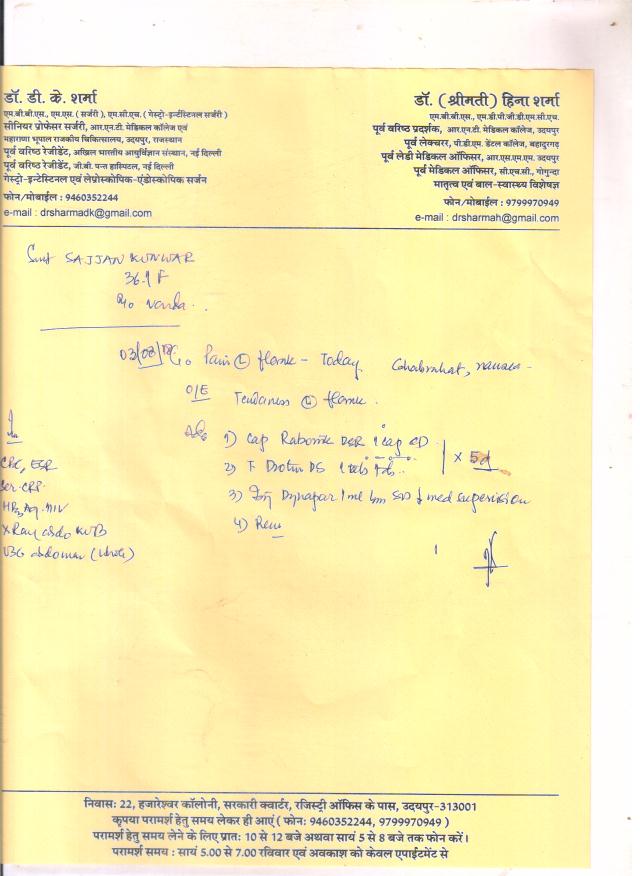 डॉ. डी. के. शर्मा
एम.बी.बी.एस., एम.एस. ( सर्जरी ), एम.सी.एच. ( गेस्ट्रो-इन्टेंस्टिनल सर्जरी )
सीनियर प्रोफेसर सर्जरी, आर.एन.टी. मेडिकल कॉलेज एवं
महाराणा भूपाल राजकीय चिकित्सालय, उदयपुर, राजस्थान
पूर्व वरिष्ठ रेजीडेंट, अखिल भारतीय आयुर्विज्ञान संस्थान, नई दिल्ली
पूर्व वरिष्ठ रेजीडेंट, जी.बी. पन्त हास्पिटल, नई दिल्ली
गेस्ट्रो-इन्टेस्टिनल एवं लेप्रोस्कोपिक-एंडोस्कोपिक सर्जन
फोन/मोबाईल : 9460352244
e-mail : drsharmadk@gmail.com
डॉ. (श्रीमती) हिना शर्मा
एम.बी.बी.एस., एम.डी.पी.जी.डी.एम.सी.एच.
पूर्व वरिष्ठ प्रदर्शक, आर.एन.टी. मेडिकल कॉलेज, उदयपुर
पूर्व लेक्चरर, पी.डी.एम. डेंटल कॉलेज, बहादुरगढ़
पूर्व लेडी मेडिकल ऑफिसर, आर.एस.एम.एम. उदयपुर
पूर्व मेडिकल ऑफिसर, सी.एच.सी., गोगुन्दा
मातृत्व एवं बाल-स्वास्थ्य विशेषज्ञ
फोन/मोबाईल : 9799970949
e-mail : drsharmah@gmail.com
Smt SAJJAN KUNWAR
36 F
Pain L flank - Today Ghabrahat, nausea
O/E Tenderness L flank
1) Cap DSR 1 cap OD
2) T DS
x 5d
3) Inj Dynapar 1 ml Im med supervision
4) Rev
CBC, ESR
Ser. CRP
HIV
X Ray abdo KUB
USG abdomen (whole)
निवासः 22, हजारेश्वर कॉलोनी, सरकारी क्वार्टर, रजिस्ट्री ऑफिस के पास, उदयपुर-313001
कृपया परामर्श हेतु समय लेकर ही आएं ( फोनः 9460352244, 9799970949 )
परामर्श हेतु समय लेने के लिए प्रातः 10 से 12 बजे अथवा सायं 5 से 8 बजे तक फोन करें।
परामर्श समय : सायं 5.00 से 7.00 रविवार एवं अवकाश को केवल एपाईटमेंट से